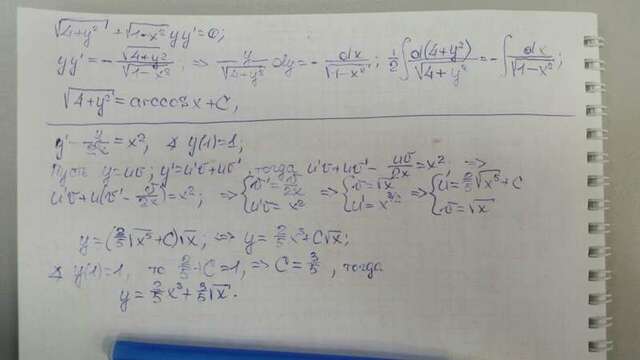 √(4+y²) + √(1-x²) yy' = 0;
yy' = - √(4+y²)/√(1-x²) ⇒ y/√(4+y²) dy = - dx/√(1-x²); 1/2 ∫ d(4+y²)/√(4+y²) = - ∫ dx/√(1-x²);
√(4+y²) = arccosx + C,
y' - y/2x = x², ∢ y(1)=1;
Пусть y=uv; y'=u'v+uv', тогда u'v+uv' - uv/2x = x² ⇒
u'v+u(v' - v/2x) = x²; ⇒ { v' = v/2x; u'v = x² ⇒ { v = √x; u' = x^(3/2) ⇒ { u = 2/5 √x⁵ + C; v = √x
y = (2/5 √x⁵ + C)√x; ⇒ y = 2/5 x³ + C√x;
∢ y(1)=1, то 2/5 + C = 1, ⇒ C = 3/5, тогда
y = 2/5 x³ + 3/5 √x.